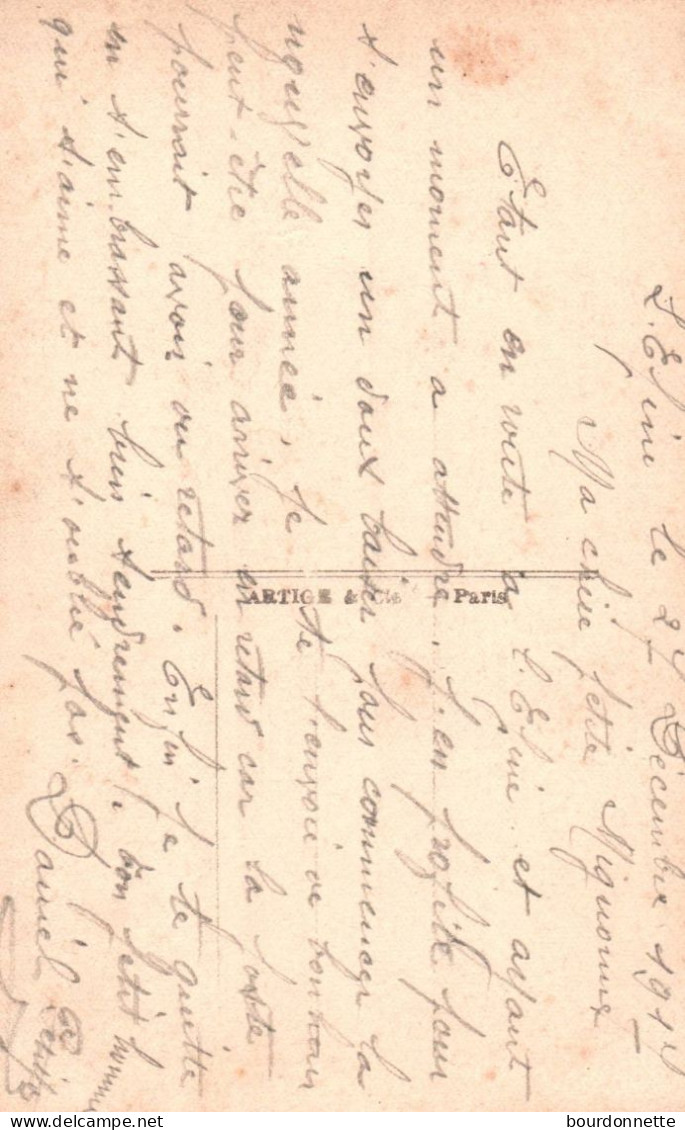 L'Epine le 27 Décembre 191
Ma chère petite Mignonne
Etant en route a L'Epine et ayant
un moment a attendre, j'en profite pour
t'envoyer un doux baiser pour commencer la
nouvelle année, je te t'envoie ce bonjour
peut-être pour arriver en retard car la poste
pourrait avoir du retard. Enfin je te quitte
en t'embrassant bien tendrement, ton petit homme
qui t'aime et ne t'oublie pas. Daniel
ARTIGE & Cie Paris
bourdonnette